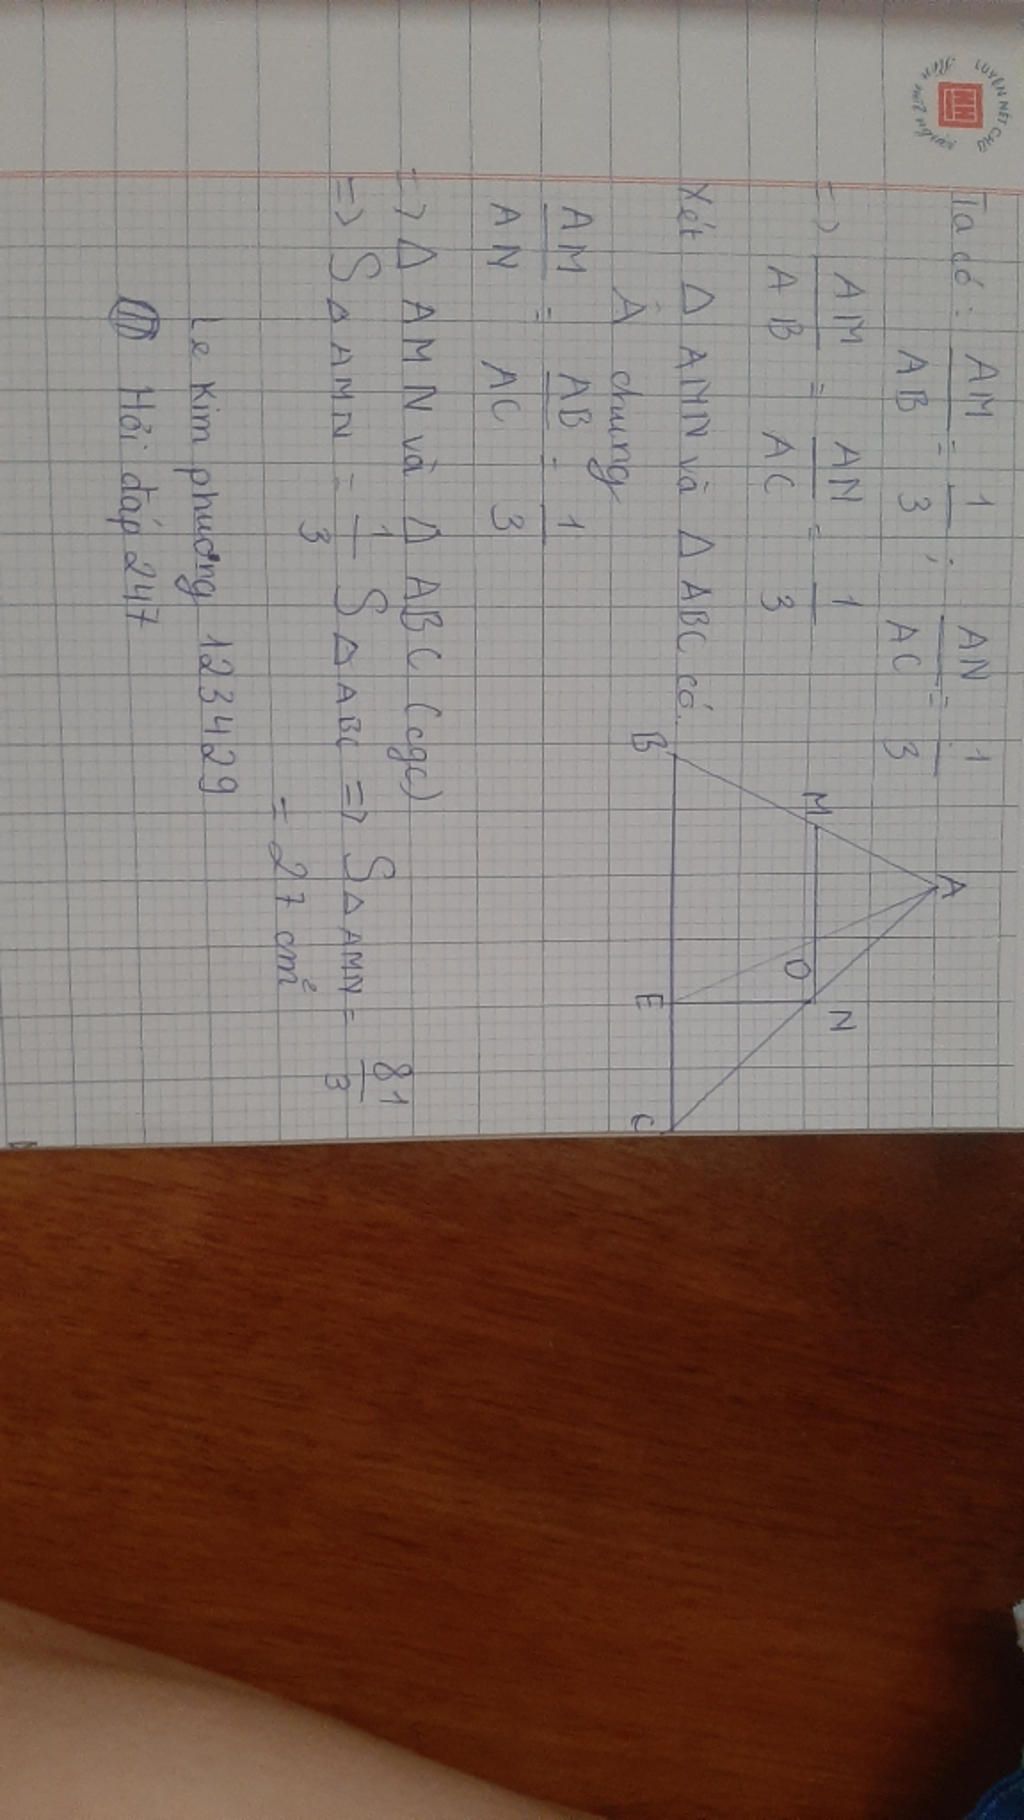 LUYỆN NÉT CHỮ
Rèn nết người
Ta có: AM/AB = 1/3 ; AN/AC = 1/3
=> AM/AB = AN/AC = 1/3
Xét Δ AMN và Δ ABC có
Â chung
AM/AN = AB/AC = 1/3
=> Δ AMN và Δ ABC (cgc)
=> SΔAMN = 1/3 SΔABC => SΔAMN = 81/3
= 27 cm²
Le Kim phương 123429
Hỏi đáp 247
A
M
N
O
B
E
C